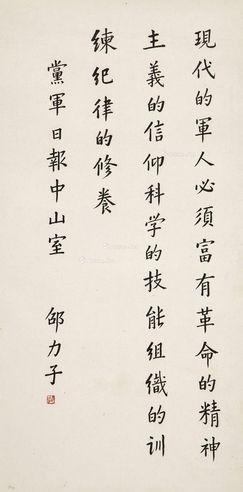 現代的軍人必須富有革命的精神
主義的信仰科学的技能組織的训
練紀律的修養
黨軍日報中山室
邵力子